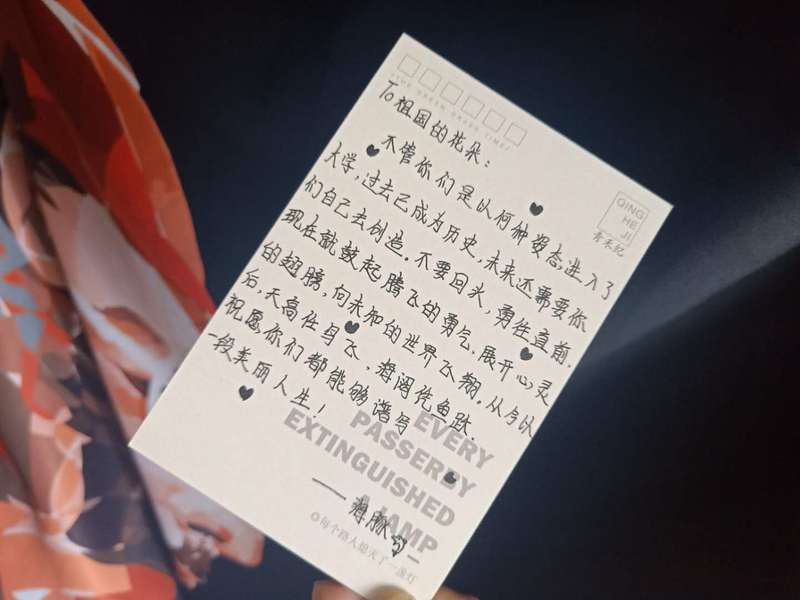 To祖国的花朵：
不管你们是以何种姿态进入了
大学，过去已成为历史，未来还需要你
们自己去创造。不要回头，勇往直前，
现在就鼓起腾飞的勇气，展开心灵
的翅膀，向未知的世界飞翔。从今以
后，天高任鸟飞，海阔凭鱼跃。
祝愿你们都能够谱写
一段美丽人生！
QING
HE
JI
青禾纪
EVERY
PASSERBY
EXTINGUISHED
A LAMP
每个路人熄灭了一盏灯